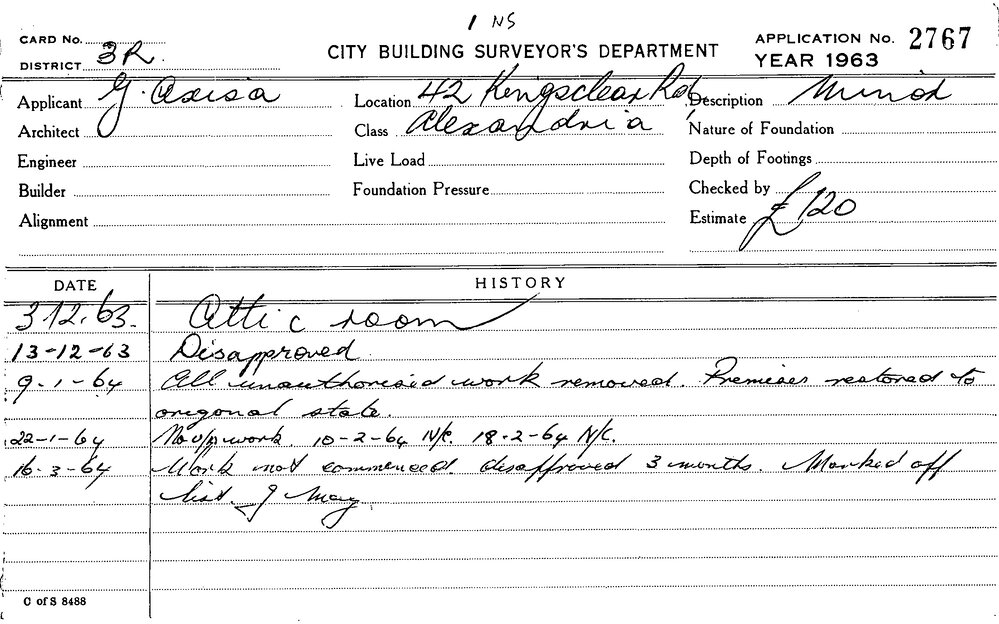 1 NS
CARD No.
CITY BUILDING SURVEYOR'S DEPARTMENT
APPLICATION No. 2767
DISTRICT 3R.
YEAR 1963
Applicant G. Axisa
Location 42 Kingsclear Rd,
Description Minor
Architect
Class Alexandria
Nature of Foundation
Engineer
Live Load
Depth of Footings
Builder
Foundation Pressure
Checked by
Alignment
Estimate £120
DATE HISTORY
3 12. 63. Attic room
13-12-63 Disapproved
9-1-64 All unauthorisid work removed. Premises restored to
origonal state.
22-1-64 No u/p work. 10-2-64 N/c. 18-2-64 N/c.
16-3-64 Work not commenced. disapproved 3 months. Marked off
list. J May
C of S 8488